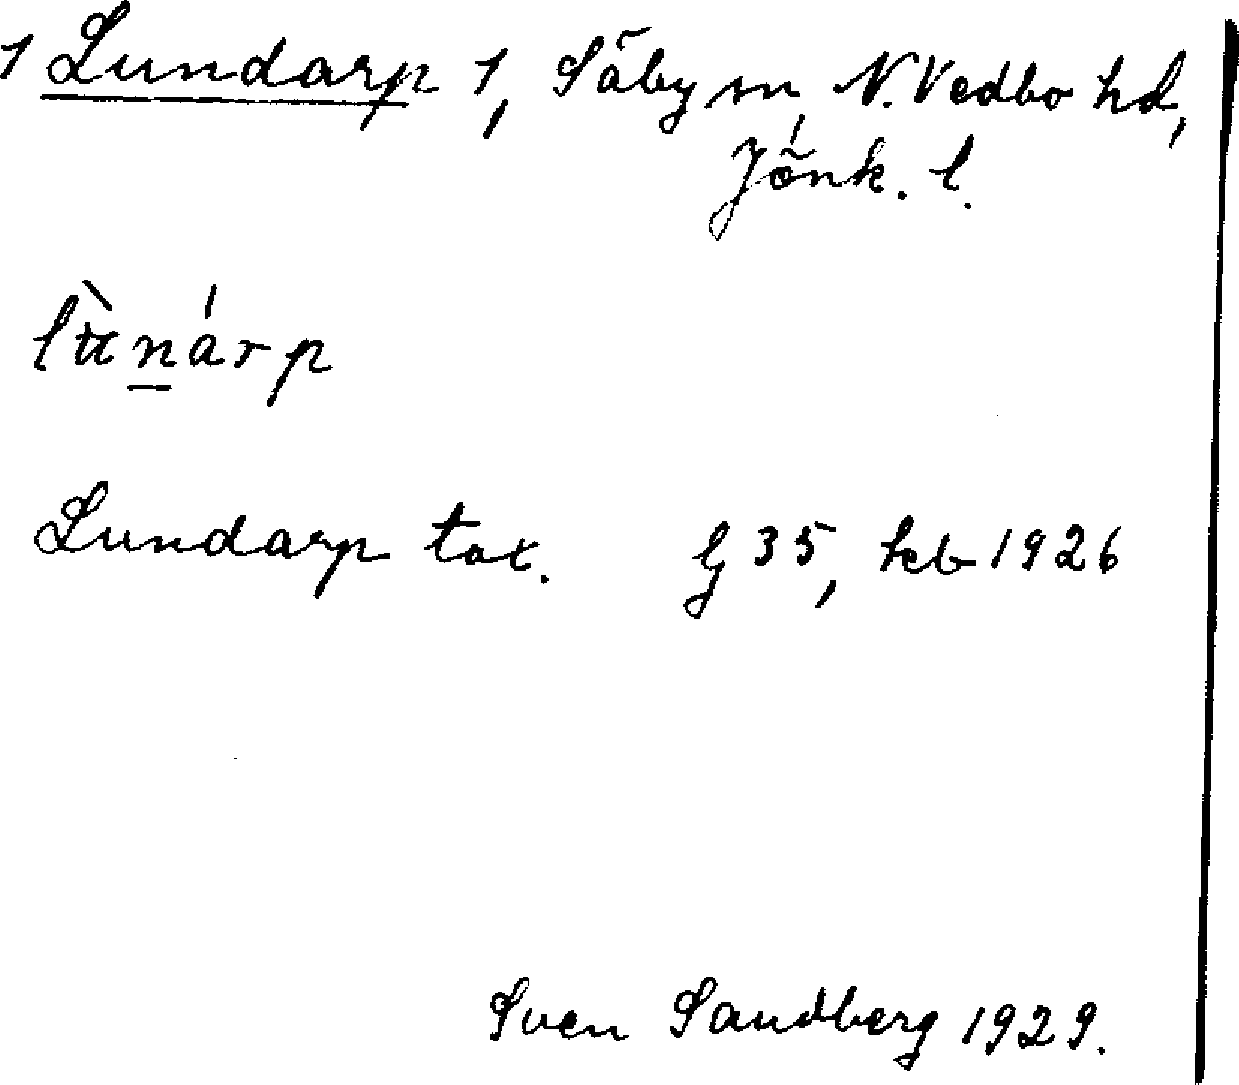 1 Lundarp 1, Säby sn, N. Vedbo hd,
Jönk. l.
Lundarp tax. G 35, kcb 1926
Sven Sandberg 1929.